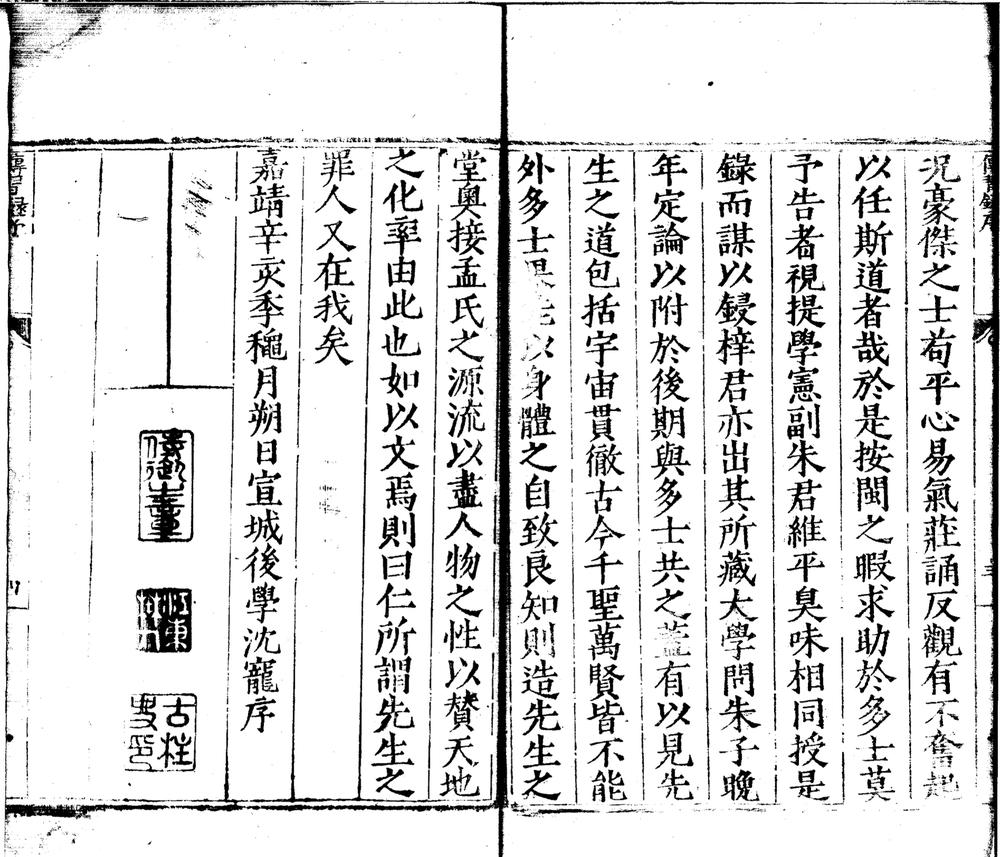 傳習錄序
况豪傑之士苟平心易氣莊誦反觀有不奮起
以任斯道者哉於是按閩之暇求助於多士莫
予告者視提學憲副朱君維平臭味相同授是
錄而謀以鋟梓君亦出其所藏大學問朱子晚
年定論以附於後期與多士共之蓋有以見先
生之道包括宇宙貫徹古今千聖萬賢皆不能
外多士果能以身體之自致良知則造先生之
堂奧接孟氏之源流以盡人物之性以贊天地
之化率由此也如以文焉則曰仁所謂先生之
罪人又在我矣
嘉靖辛亥季穐月朔日宣城後學沈寵序
古柱
史印
傳習錄序